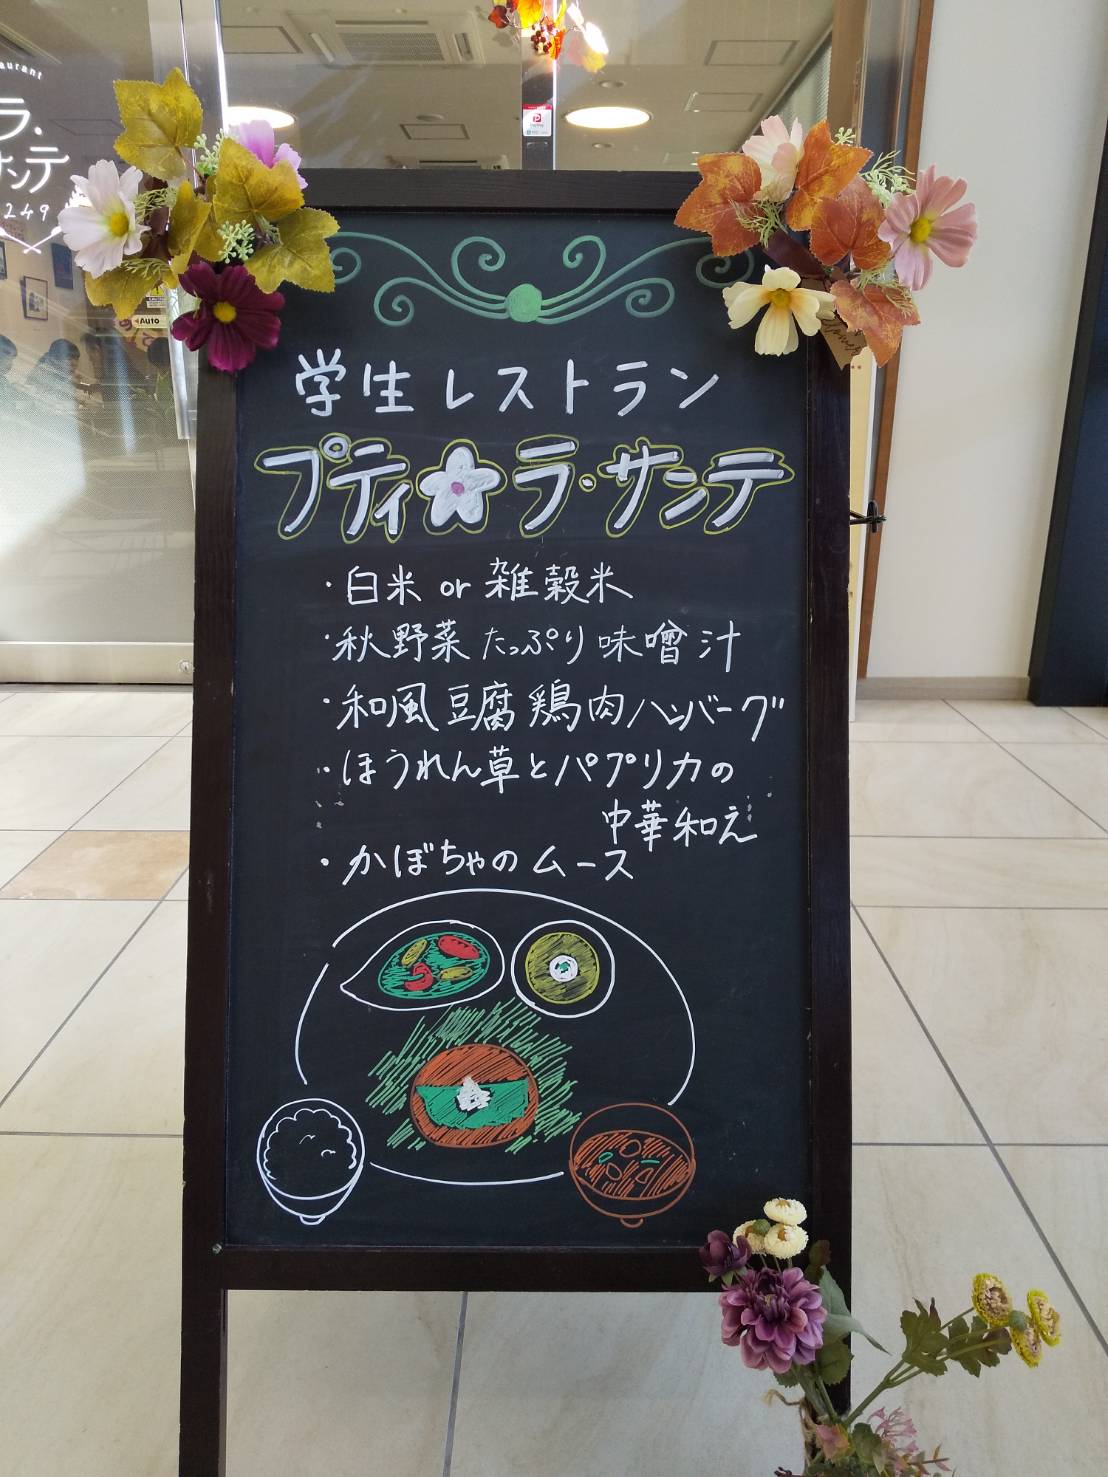 ラ・
サンテ
249
Auto
学生レストラン
プティ☆ラ・サンテ
・白米 or 雑穀米
・秋野菜たっぷり味噌汁
・和風豆腐鶏肉ハンバーグ
・ほうれん草とパプリカの
中華和え
・かぼちゃのムース